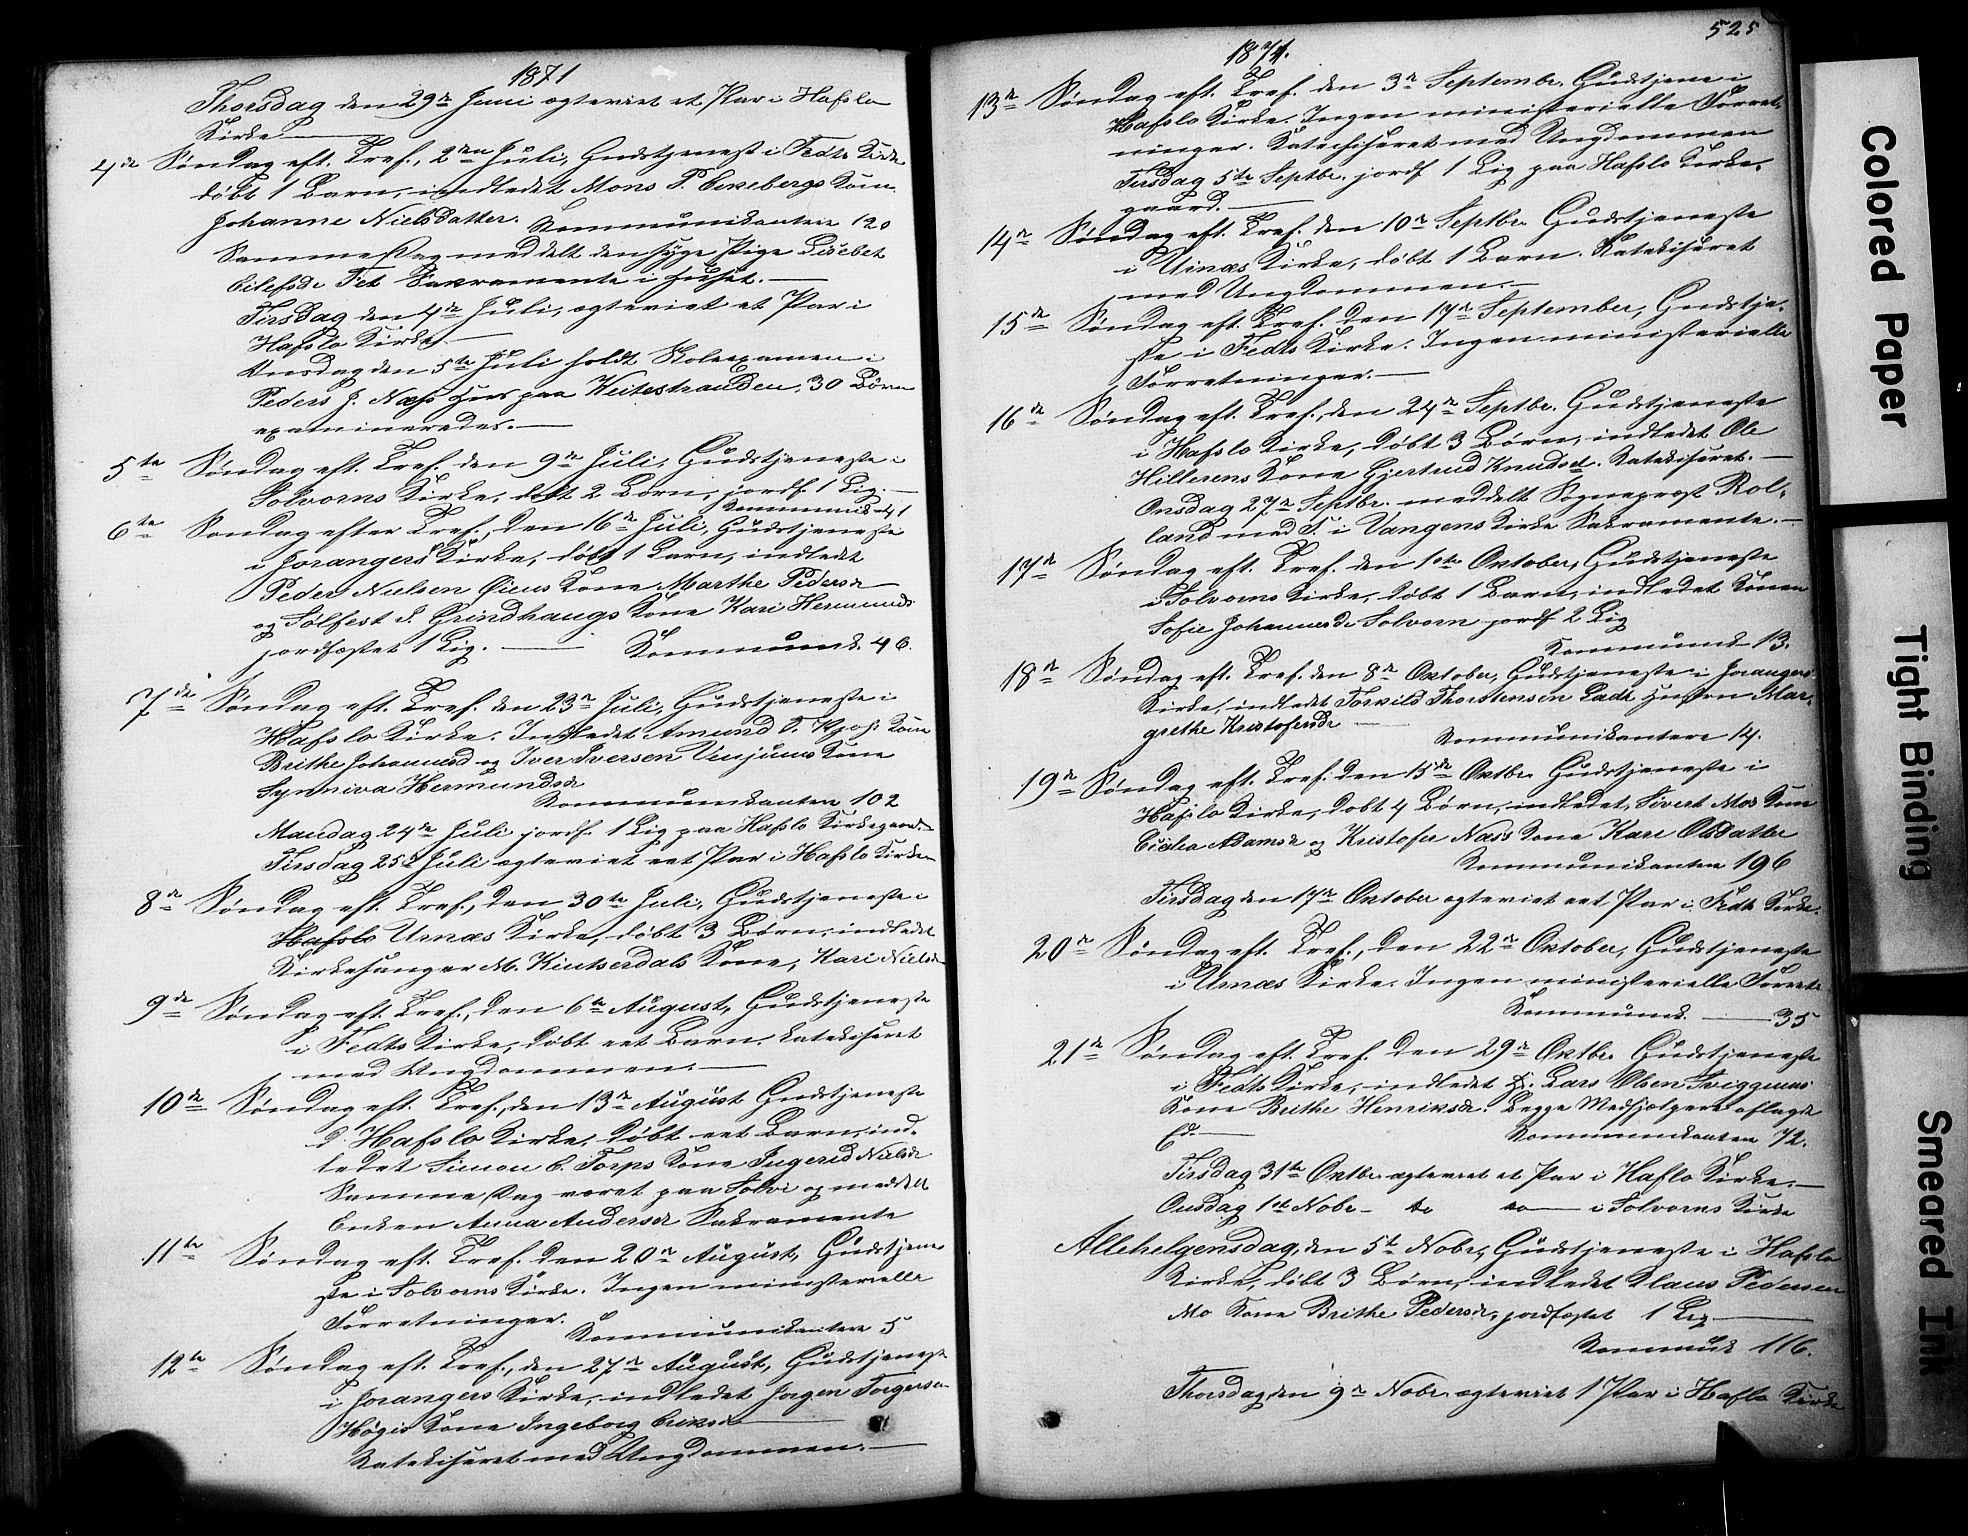 1871
Thorsdag den 29de Juni egteviet et Par i Hafslo
Kirke.
4de Søndag eft. Tref., 2den Juli, Gudstjenest i Fedts Kirke
døbt 1 Barn, indledet Mons P. Bekebergs Kone
Johanne Nielsdatter. Kommunikanter 120
Samme Dag meddelt den syge Pige Lisebet
Eilefsdr Fet Sakramente i Huset.
Tirsdag den 4de Juli, egteviet et Par i
Hafslo Kirke.
Onsdag den 5te Juli holdt Skoleexamen i
Peders J. Næss Huus paa Veitestranden, 30 Børn
examineredes.
5te Søndag eft. Tref. den 9de Juli, Gudstjeneste i
Solvorns Kirke, døbt 2 Børn, jordf. 1 Lig.
Kommunik 41
6te Søndag efter Tref. den 16de Juli, Gudstjeneste
i Jorangers Kirke, døbt 1 Barn, indledet
Peder Nielsen Øiens Kone Marthe Pedersdr
og Sølfest S. Grindhaugs Kone Kari Hermunds
jordfæstet 1 Lig. Kommunik. 46.
7de Søndag eft. Tref. den 23de Juli, Gudstjeneste i
Hafslo Kirke. Indledet Amund T. Kjos Kone
Brithe Johannesd og Iver Iversen Venjums Kone
Synniva Hermundsdr
Kommunikanter 102
Mandag 24de Juli jordf. 1 Lig paa Hafslo Kirkegaard
Tirsdag 25de Juli egteviet eet Par i Hafslo Kirke
8de Søndag eft. Tref., den 30te Juli, Gudstjeneste i
Hafslo Urnæs Kirke, døbt 3 Børn, indledet
Kirkesanger M. Kintserdals Kone, Kari Nielsdr
9de Søndag eft. Tref., den 6te August, Gudstjeneste
i Fedts Kirke, døbt eet Barn, katekiseret
med Ungdommen.
10de Søndag eft. Tref., den 13de August Gudstjeneste
i Hafslo Kirke, døbt eet Barn, ind-
ledet Simon E. Torps Kone Ingerid Nielsdr
Samme Dag været paa Solvi og meddelt
Enken Anna Andersdr Sakramente
11te Søndag eft. Tref. den 20de August, Gudstjene-
ste i Solvorns Kirke. Ingen ministerielle
Forretninger.
Kommunikantere 5
12te Søndag eft. Tref., den 27de August, Gudstjeneste
i Jorangers Kirke, indledet Jørgen Torgersen
Høgis Kone Ingeborg Eriksdr
Katekiseret med Ungdommen.
525
1871.
13de Søndag eft. Tref. den 3de Septembr. Gudstjene i
Hafslo Kirke. Ingen ministerielle Forret-
ninger. Katechiseret med Ungdommen
Tirsdag 5te Septbr. jordf 1 Lig paa Hafslo Kirke-
gaard.
14de Søndag eft. Tref. den 10de Septbr Gudstjeneste
i Urnæs Kirke, døbt 1 Barn. Katekiseret
med Ungdommen.
15de Søndag eft. Tref. den 17de September, Gudstje-
ste i Fedts Kirke. Ingen ministerielle
Forretninger.
16de Søndag eft. Tref., den 24de Septbr. Gudstjeneste
i Hafslo Kirke, døbt 3 Børn, indledet Ole
Hillerens Kone Gjertrud Knudsd. Katekiseret.
Onsdag 27de Septbr. meddelt Sogneprest Rol-
land med F. i Vangens Kirke Sakramente.
17de Søndag eft. Tref. den 1ste Oktober, Gudstjeneste
i Solvorns Kirke, døbt 1 Barn, indledet Konen
Sofie Johannesdr Solvorn jordf 2 Lig
Kommunik 13.
18de Søndag eft. Tref. den 8de Oktober, Gudstjeneste i Jorangers
Kirke, indledet Torkild Thorstensen Lads Hustru Mar-
grethe Kristofersdr
Kommunikantere 14.
19de Søndag eft. Tref. den 15de Oktbr. Gudstjeneste i
Hafslo Kirke, døbt 4 Børn, indledet, Sivert Mos Kone
Cicilia Adamsdr og Kristofer Næss Kone Kari Olsdatter
Kommunikantere 196
Tirsdag den 17de Oktober egteviet eet Par i Fedts Kirke.
20de Søndag eft. Tref., den 22de Oktober, Gudstjeneste
i Urnæs Kirke. Ingen ministerielle Forret
Kommunik. 35
21de Søndag eft. Tref. den 29de Oktbr. Gudstjeneste
i Fedts Kirke, indledet Lars Olsen Sviggums
Kone Brithe Henriksdr. Begge Medhjælpere aflagde
Ed. Kommunikanter 72.
Tirsdag 31te Oktbr. egteviet et Par i Haflo Kirke.
Onsdag 1ste Nobr - do do i Solvorns Kirke
Allehelgensdag, den 5te Nobr, Gudstjeneste i Hafslo
Kirke, døbt 3 Børn, indledet Klaus Pedersen
Mo Kone Brithe Pedersdr, jordfæstet 1 Lig
Kommunik 116.
Thorsdag den 9de Nobr egteviet 1 Par i Haflo Kirke
Colored Paper
Tight Binding
Smeared Ink